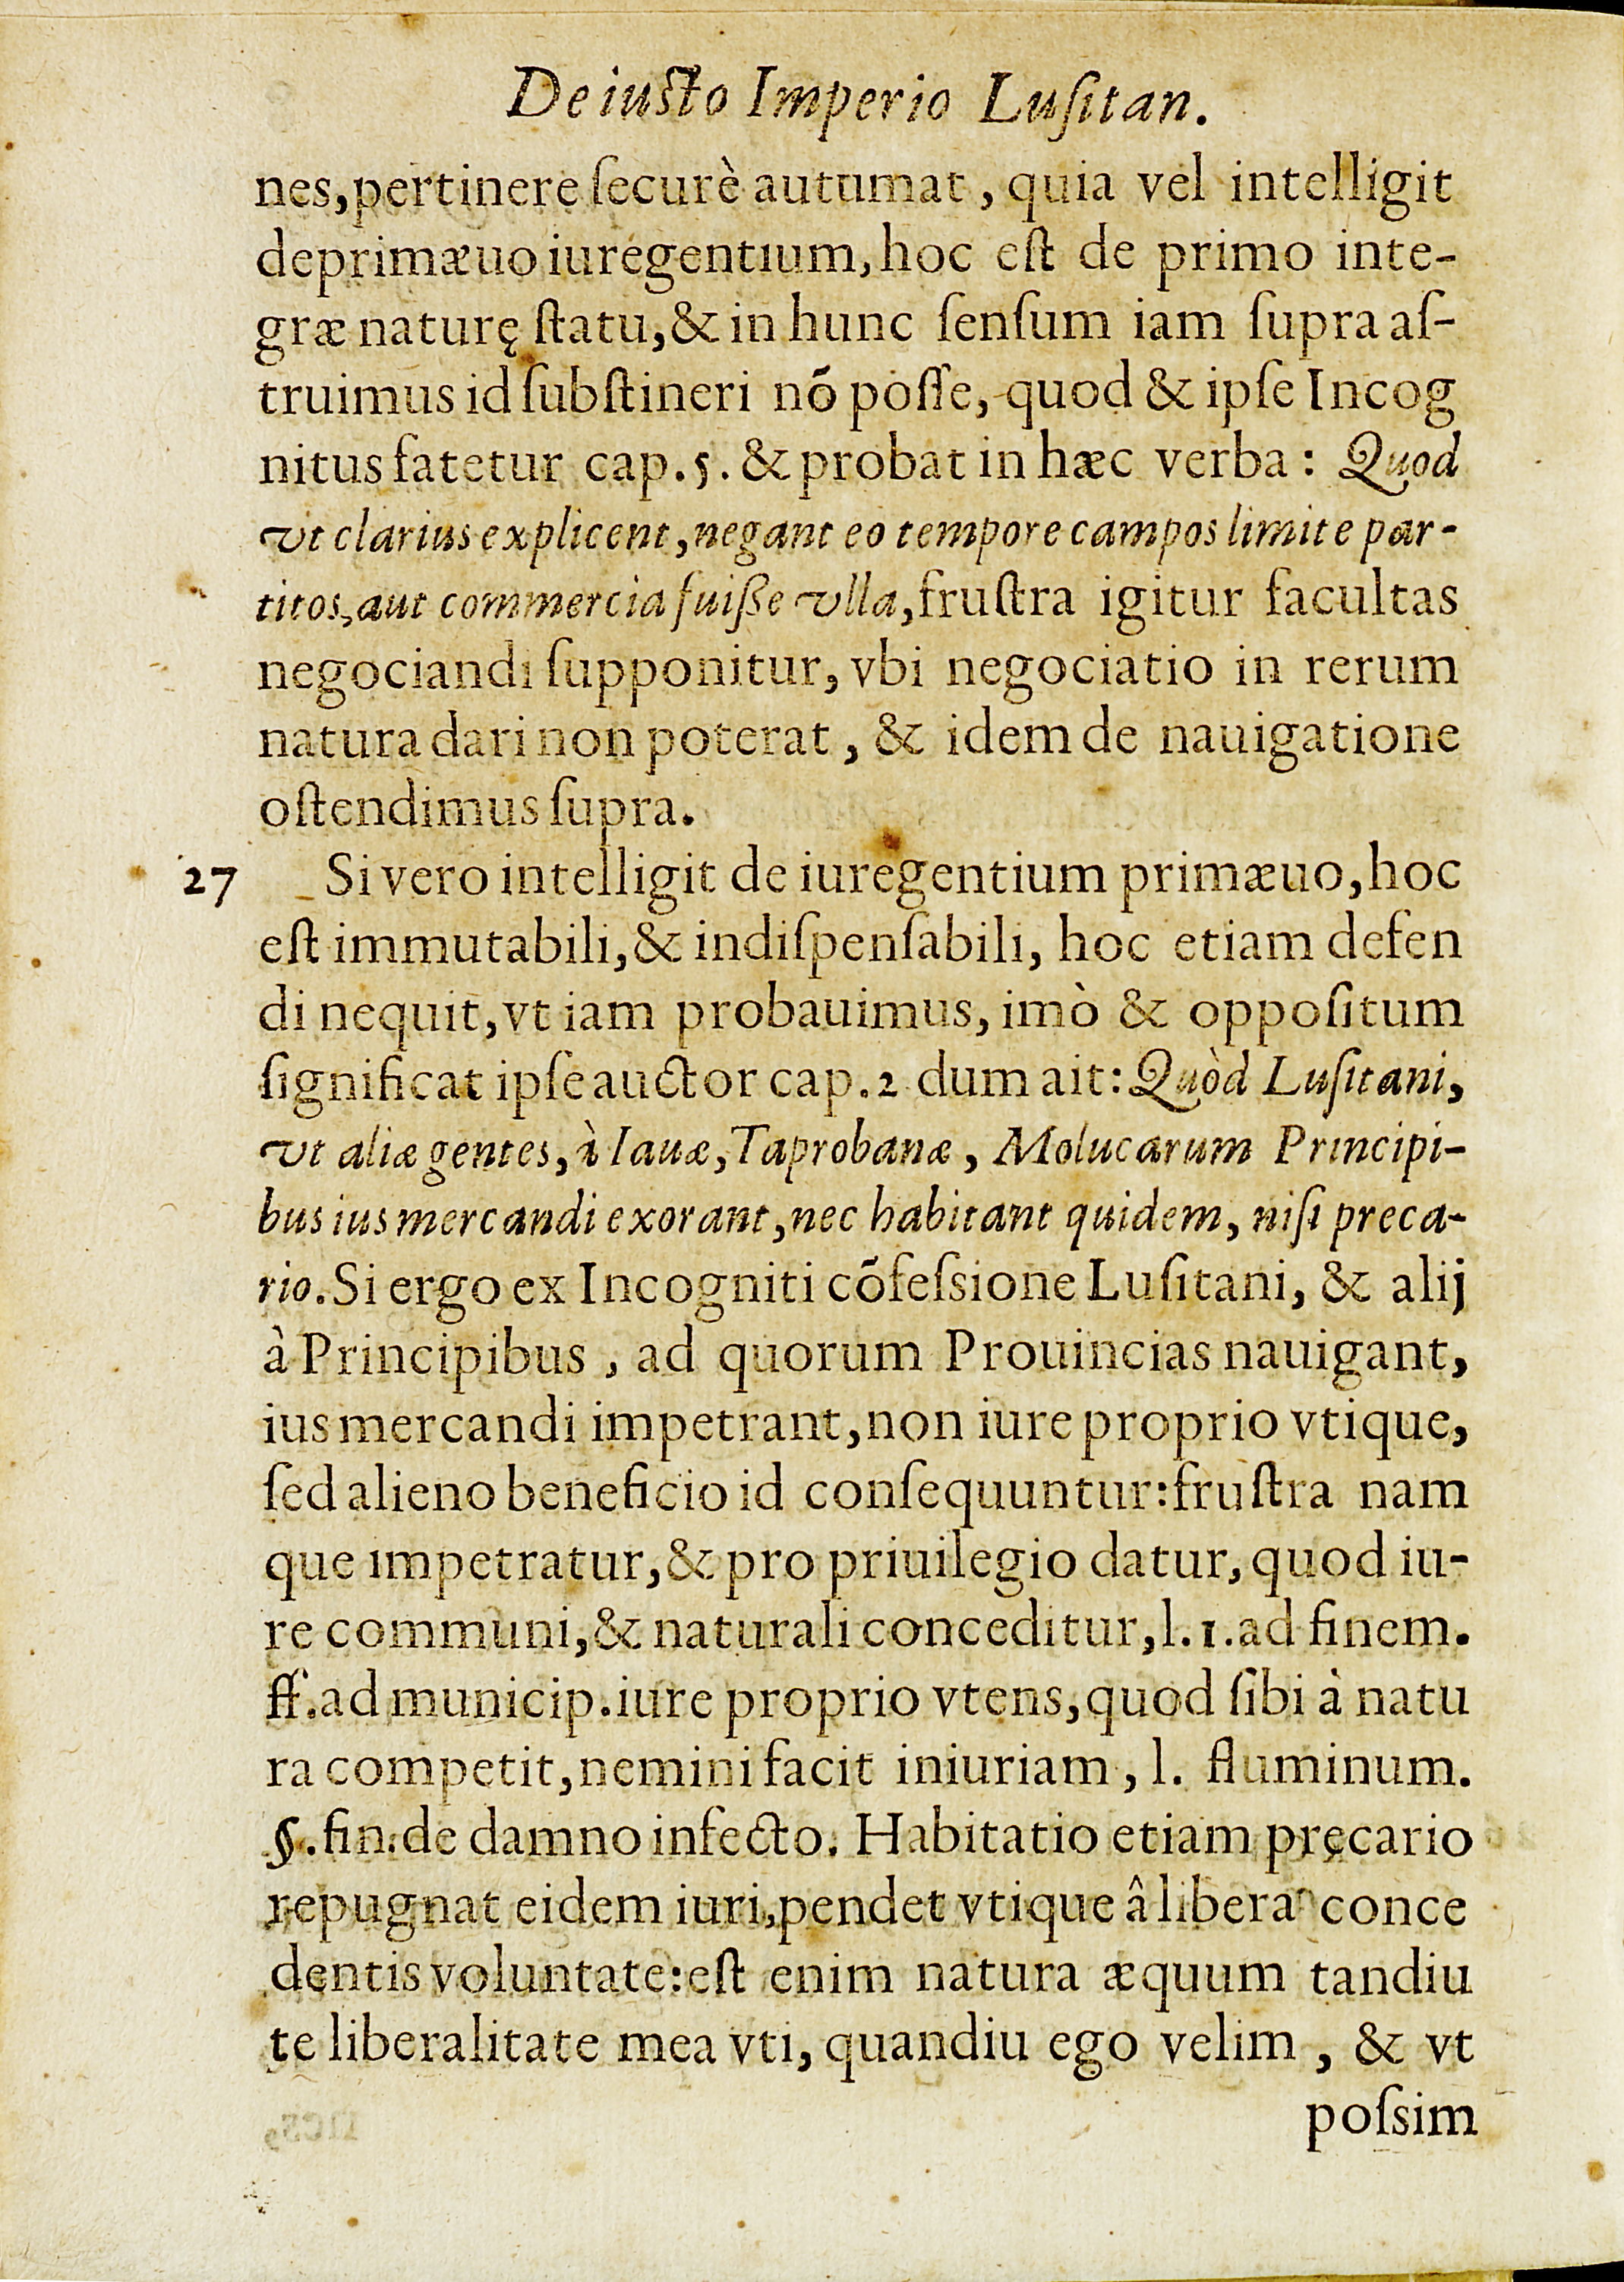 De iusto Imperio Lusitan.
nes, pertinere securè autumat, quia vel intelligit
de primæuo iure gentium, hoc est de primo inte-
græ naturę statu, & in hunc sensum iam supra as-
truimus id substineri nõ posse, quod & ipse Incog
nitus fatetur cap. 5. & probat in hæc verba: Quod
vt clarius explicent, negant eo tempore campos limite par-
titos, aut commercia fuisse vlla, frustra igitur facultas
negociandi supponitur, vbi negociatio in rerum
natura dari non poterat, & idem de nauigatione
ostendimus supra.
27 Si vero intelligit de iure gentium primæuo, hoc
est immutabili, & indispensabili, hoc etiam defen
di nequit, vt iam probauimus, imò & oppositum
significat ipse auctor cap. 2 dum ait: Quòd Lusitani,
vt aliæ gentes, à Iauæ, Taprobanæ, Molucarum Principi-
bus ius mercandi exorant, nec habitant quidem, nisi preca-
rio. Si ergo ex Incogniti cõfessione Lusitani, & alij
à Principibus, ad quorum Prouincias nauigant,
ius mercandi impetrant, non iure proprio vtique,
sed alieno beneficio id consequuntur: frustra nam
que impetratur, & pro priuilegio datur, quod iu-
re communi, & naturali conceditur, l. 1. ad finem.
ff. ad municip. iure proprio vtens, quod sibi à natu
ra competit, nemini facit iniuriam, l. fluminum.
§. fin. de damno infecto. Habitatio etiam pręcario
repugnat eidem iuri, pendet vtique â libera conce
dentis voluntate: est enim natura æquum tandiu
te liberalitate mea vti, quandiu ego velim, & vt
possim